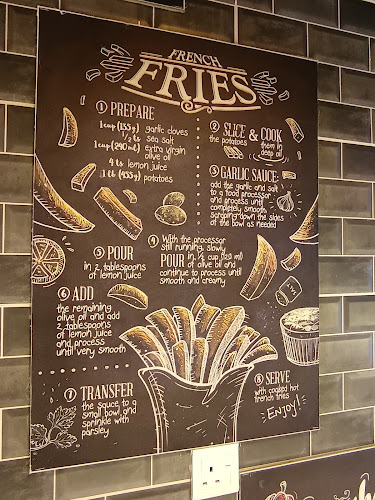 FRENCH
FRIES
① PREPARE
1 cup (135g) garlic cloves
½ ts sea salt
1 cup (240 ml) extra virgin
olive oil
4 ts lemon juice
1 lb (455g) potatoes
② SLICE & COOK
the potatoes them in
deep oil
③ GARLIC SAUCE:
add the garlic and salt
to a food processor
and process until
completely smooth,
scraping down the sides
of the bowl as needed
④ With the processor
still running, slowly
POUR in ½ cup (120 ml)
of olive oil and
continue to process until
smooth and creamy
⑤ POUR
in 2 tablespoons
of lemon juice
⑥ ADD
the remaining
olive oil and add
2 tablespoons
of lemon juice
and process
until very smooth
⑦ TRANSFER
the sauce to a
small bowl and
sprinkle with
parsley
⑧ SERVE
with coated hot
french fries
ENJOY!